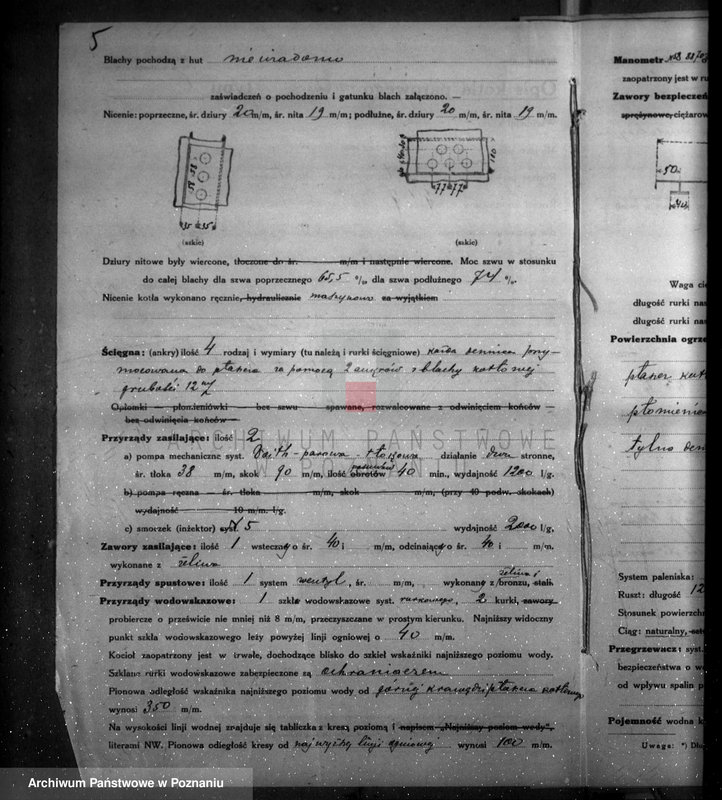 5
Blachy pochodzą z hut niewiadomo
zaświadczeń o pochodzeniu i gatunku blach załączono. —
Nicenie: poprzeczne, śr. dziury 20 m/m, śr. nita 19 m/m; podłużne, śr. dziury 20 m/m, śr. nita 19 m/m.
58 58
35 35
(szkic)
77 77
180
(szkic)
Dziury nitowe były wiercone, tłoczone do śr. m/m i następnie wiercone. Moc szwu w stosunku
do całej blachy dla szwa poprzecznego 65,5 %, dla szwa podłużnego 74 %.
Nicenie kotła wykonano ręcznie, hydraulicznie maszynowo za wyjątkiem
Ścięgna: (ankry) ilość 4 rodzaj i wymiary (tu należą i rurki ścięgniowe) każda dennica przy-
mocowana do płaszcza za pomocą 2 ankrów z blachy kotłowej
grubości 12 m/
Opłomki — płomieniówki — bez szwu — spawane, rozwalcowane z odwinięciem końców —
bez odwinięcia końców —
Przyrządy zasilające: ilość 2
a) pompa mechaniczne syst. parowa - tłokowa działanie dwu stronne,
śr. tłoka 38 m/m, skok 90 m/m, ilość obrotów 40 min., wydajność 1200 l/g.
b) pompa ręczna — śr. tłoka m/m, skok m/m, (przy 40 podw. skokach)
wydajność 10 m/m. l/g.
c) smoczek (inżektor) syst. 5 wydajność 2000 l/g,
Zawory zasilające: ilość 1 wstecznego śr. 40 i m/m, odcinającego śr. 40 i m/m.
wykonane z żeliwa
Przyrządy spustowe: ilość 1 system wentyl, śr. m/m, wykonany z żeliwa i bronzu, stali.
Przyrządy wodowskazowe: 1 szkła wodowskazowe syst. rurkowego, 2 kurki, zawory
probiercze o prześwicie nie mniej niż 8 m/m, przeczyszczane w prostym kierunku. Najniższy widoczny
punkt szkła wodowskazowego leży powyżej linji ogniowej o 40 m/m.
Kocioł zaopatrzony jest w trwałe, dochodzące blisko do szkieł wskaźniki najniższego poziomu wody.
Szklane rurki wodowskazowe zabezpieczone są ochraniaczem
Pionowa odległość wskaźnika najniższego poziomu wody od górnej krawędzi płaszcza kotłowego
wynosi 350 m/m.
Na wysokości linji wodnej znajduje się tabliczka z kresą poziomą i napisem „Najniższy poziom wody",
literami NW. Pionowa odległość kresy od najwyższej linji ogniowej wynosi 100 m/m.
Manometr
zaopatrzony jest w ru
Zawory bezpieczeń
sprężynowe, ciężarow
50
Waga cię
długość rurki nas
długość rurki nas
Powierzchnia ogrze
płaszcz kotł
płomienia
tylna den
System paleniska:
Ruszt: długość 12
Stosunek powierzch
Ciąg: naturalny,
Przegrzewacz: syst.
bezpieczeństwa o w
od wpływu spalin p
Pojemność wodna k
Uwaga: *) Dłu
ARCHIWUM PAŃSTWOWE
W POZNANIU
Archiwum Państwowe w Poznaniu